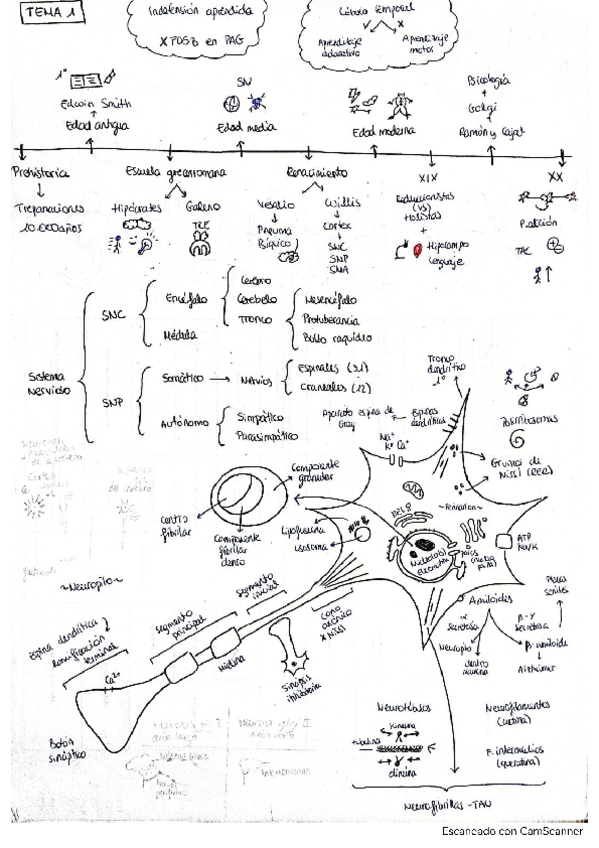 TEMA 1
Indefensión aprendida
X POSB en PAG
Lóbulo temporal
✓ X
Aprendizaje
Aprendizaje
motor
1º
Edwin Smith
Edad antigua
SN
Edad media
Edad moderna
Psicología
+
Golgi
+
Ramón y Cajal
Prehistoria
Trepanaciones
10.000 años
Escuela grecorromana
Hipócrates
Galeno
Renacimiento
Vesalio
Pneuma
Willis
Cortex
+
SNC
SNP
SNA
XIX
Reduccionistas
(vs)
Holistas
+
Hipocampo
Lenguaje
XX
TAC
Sistema
Nervioso
SNC
Encéfalo
Cerebro
Cerebelo
Tronco
Mesencéfalo
Protuberancia
Bulbo raquídeo
Médula
SNP
Somático → Nervios
Espinales (31)
Craneales (12)
Autónomo
Simpático
Parasimpático
Tronco
dendrítico
1º
Espinas
dendríticas
Aparato espina de
Gray
Na+
K+ Ca2+
Polirribosomas
Grumos de
Nissl (RER)
~Pericarion~
Componente
granular
Centro
fibrilar
Componente
fibrilar
denso
Lipofuscina
Lisosoma
REL
Nucleolo
Eucromatina
ATP
Na+/K+
Placas
seniles
Amiloides
α
secretasa
Neuropilo
dentro
neurona
β-γ
secretasa
β-amiloide
Alzheimer
~Neuropilo~
Espina dendrítica
Ramificación
terminal
Segmento
principal
Segmento
inicial
Cono
axónico
X Nissl
Mielina
Sinapsis
inhibitoria
Ca2+
Botón
sináptico
Neurotúbulos
kinesina
tubulina
dineina
Neurofilamentos
F. intermedios
(queratina)
Neurofibrillas - TAU
Escaneado con CamScanner